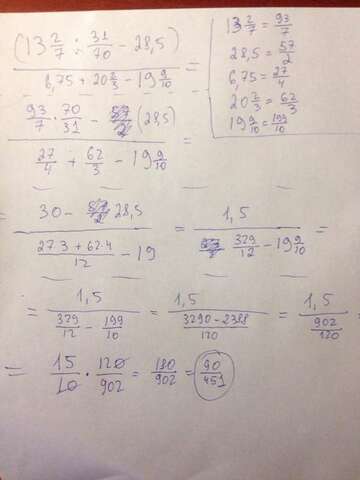 (13 2/7 : 31/70 - 28,5) / (6,75 + 20 2/3 - 19 9/10) =
13 2/7 = 93/7
28,5 = 57/2
6,75 = 27/4
20 2/3 = 62/3
19 9/10 = 199/10
(93/7 · 70/31 - (28,5)) / (27/4 + 62/3 - 19 9/10) =
= (30 - 28,5) / ((27·3 + 62·4)/12 - 19) = 1,5 / (329/12 - 19 9/10) =
= 1,5 / (329/12 - 199/10) = 1,5 / ((3290 - 2388)/120) = 1,5 / (902/120)
= 15/10 · 120/902 = 180/902 = 90/451